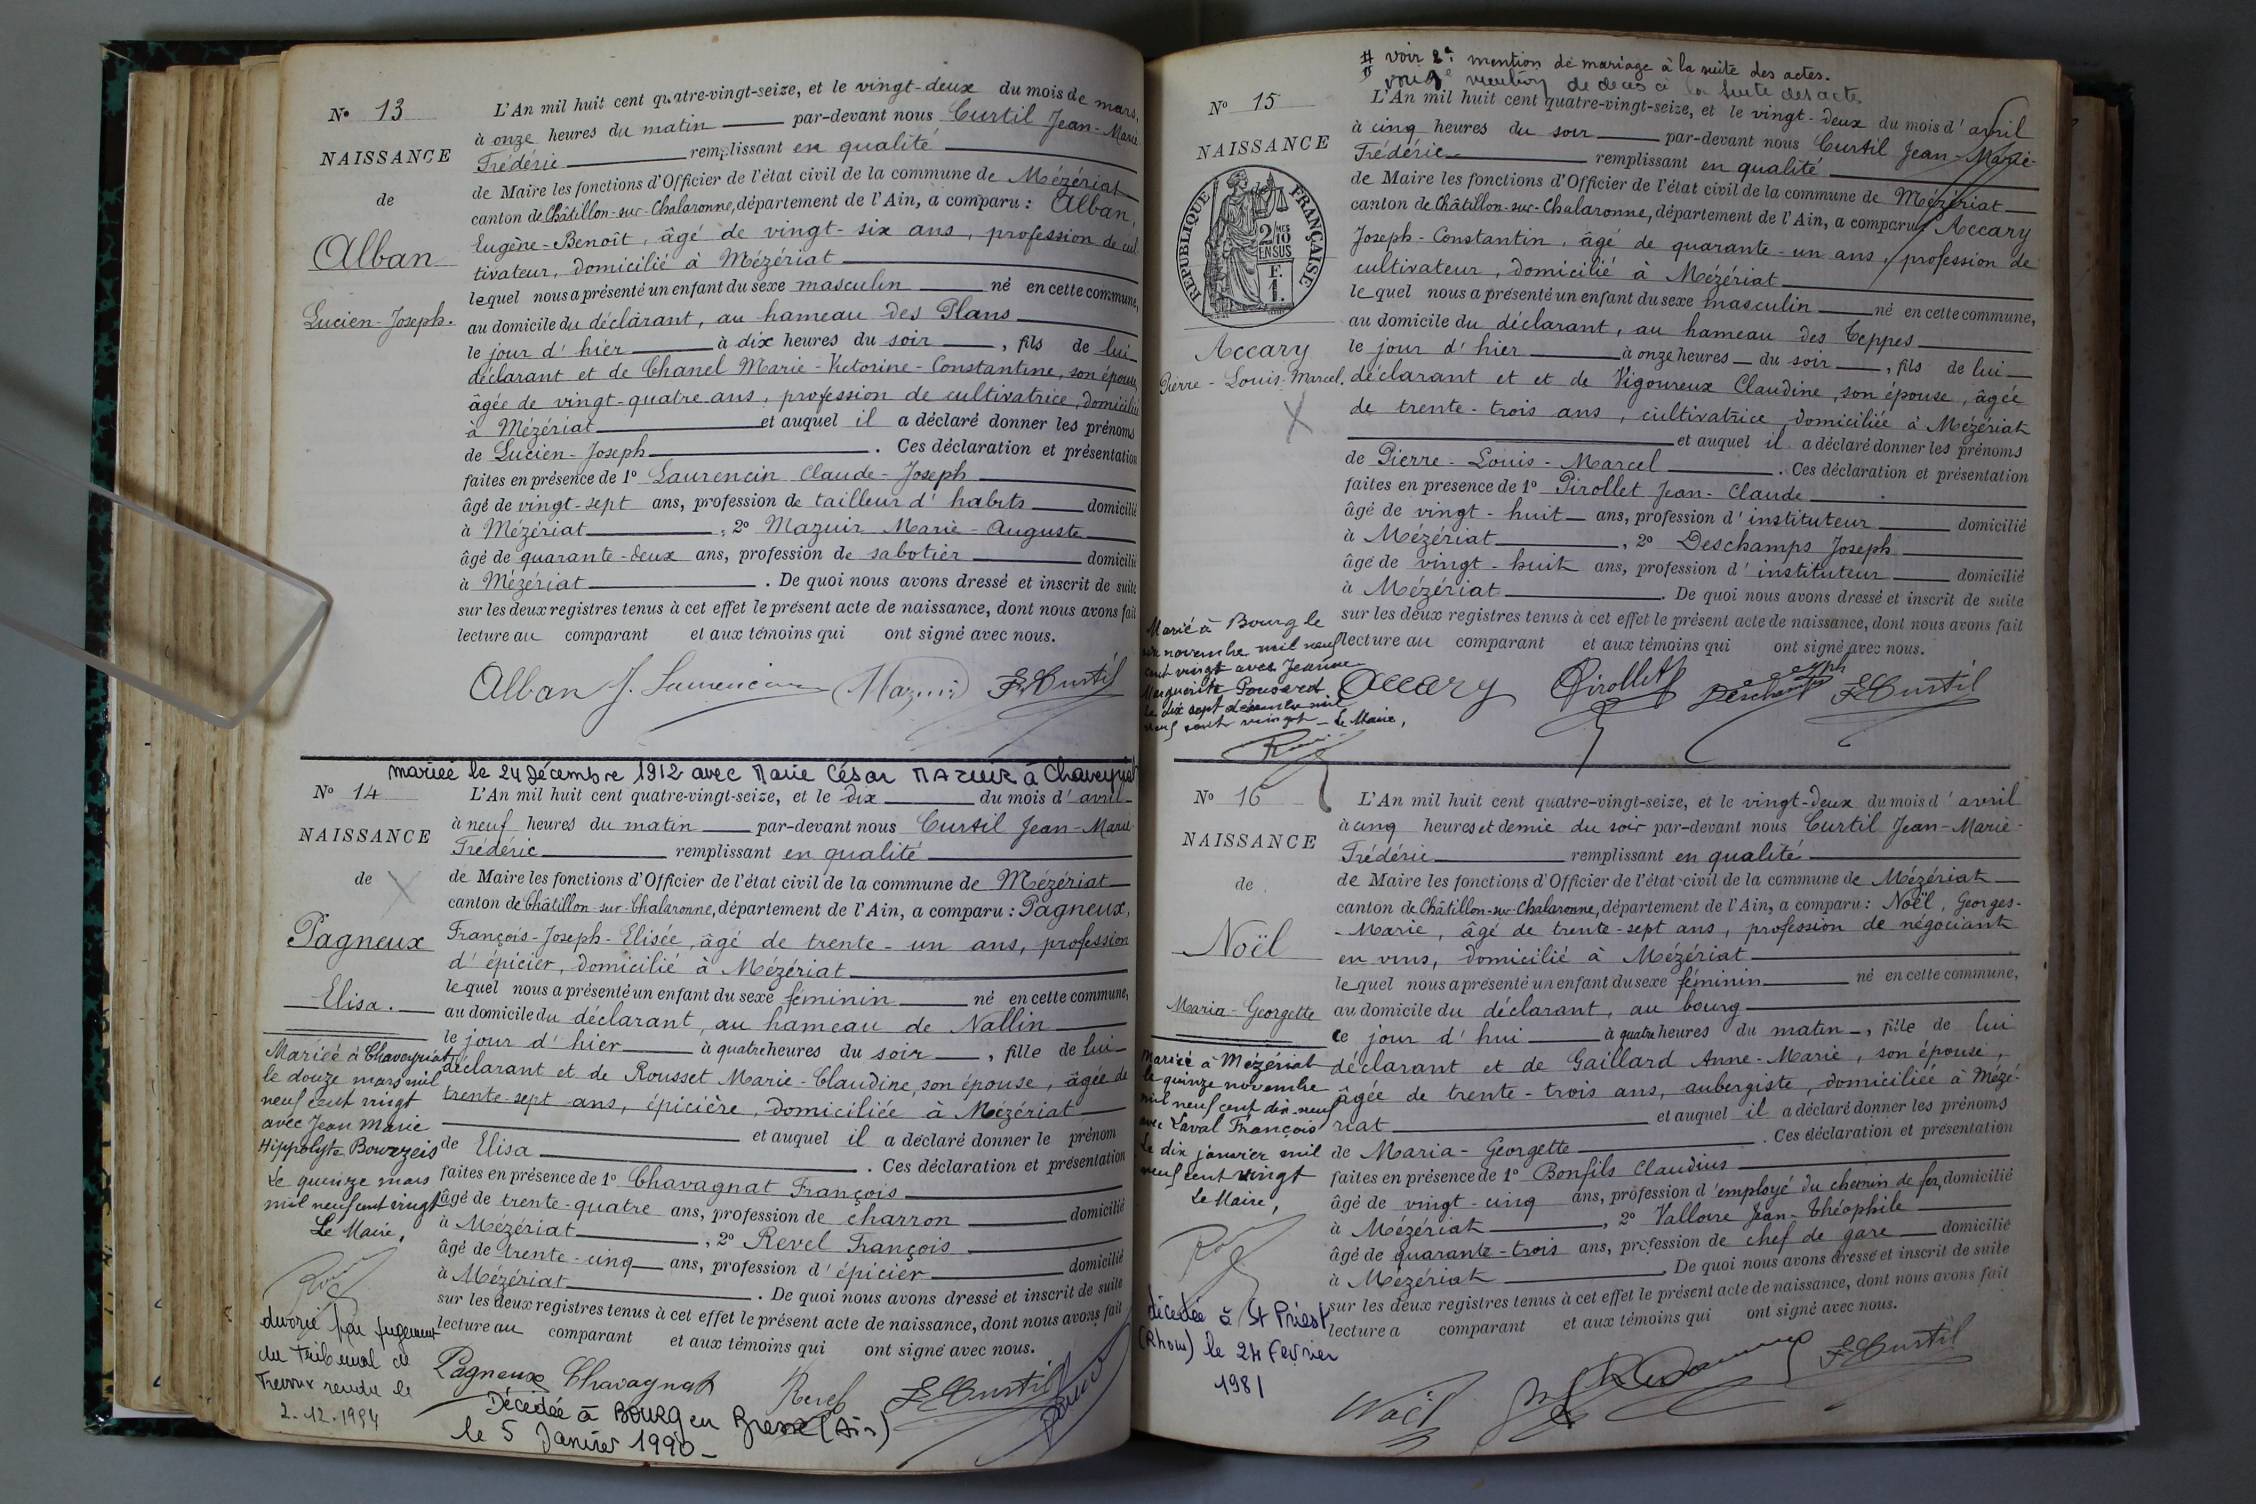 Nº 13
NAISSANCE
de
Alban
Lucien-Joseph.
L'An mil huit cent quatre-vingt-seize, et le vingt-deux du mois de mars,
à onze heures du matin par-devant nous Curtil Jean-Marie
Frédéric remplissant en qualité
de Maire les fonctions d'Officier de l'état civil de la commune de Mézériat
canton de Châtillon-sur-Chalaronne, département de l'Ain, a comparu : Alban,
Eugène-Benoît, âgé de vingt-six ans, profession de cul
tivateur, domicilié à Mézériat
lequel nous a présenté un enfant du sexe masculin né en cette commune,
au domicile du déclarant, au hameau des Plans
le jour d'hier à dix heures du soir, fils de lui
déclarant et de Chanel Marie-Victorine-Constantine, son épouse,
âgée de vingt-quatre ans, profession de cultivatrice, domiciliée
à Mézériat et auquel il a déclaré donner les prénoms
de Lucien-Joseph. Ces déclaration et présentation
faites en présence de 1º Laurencin Claude-Joseph
âgé de vingt-sept ans, profession de tailleur d'habits domicilié
à Mézériat, 2º Mazuir Marie-Auguste
âgé de quarante-deux ans, profession de sabotier domicilié
à Mézériat. De quoi nous avons dressé et inscrit de suite
sur les deux registres tenus à cet effet le présent acte de naissance, dont nous avons fait
lecture au comparant et aux témoins qui ont signé avec nous.
Alban J. Laurencin Mazuir F. Curtil
mariée le 24 décembre 1912 avec Marie César MAZUIR à Chaveyriat
Nº 14
NAISSANCE
de
Pagneux
Elisa.
L'An mil huit cent quatre-vingt-seize, et le dix du mois d'avril
à neuf heures du matin par-devant nous Curtil Jean-Marie
Frédéric remplissant en qualité
de Maire les fonctions d'Officier de l'état civil de la commune de Mézériat
canton de Châtillon-sur-Chalaronne, département de l'Ain, a comparu : Pagneux,
François-Joseph-Elisée, âgé de trente-un ans, profession
d'épicier, domicilié à Mézériat
lequel nous a présenté un enfant du sexe féminin né en cette commune,
au domicile du déclarant, au hameau de Nallin
le jour d'hier à quatre heures du soir, fille de lui
déclarant et de Rousset Marie-Claudine, son épouse, âgée de
trente-sept ans, épicière, domiciliée à Mézériat
et auquel il a déclaré donner le prénom
de Elisa. Ces déclaration et présentation
faites en présence de 1º Chavagnat François
âgé de trente-quatre ans, profession de charron domicilié
à Mézériat, 2º Revel François
âgé de trente-cinq ans, profession d'épicier domicilié
à Mézériat. De quoi nous avons dressé et inscrit de suite
sur les deux registres tenus à cet effet le présent acte de naissance, dont nous avons fait
lecture au comparant et aux témoins qui ont signé avec nous.
Pagneux Chavagnat Revel F. Curtil
Mariée à Chaveyriat
le douze mars mil
neuf cent vingt
avec Jean Marie
Hippolyte Bourzeis
Le quinze mars
mil neuf cent vingt
Le Maire,
divorcé par jugement
du Tribunal de
Trevoux rendu le
2.12.1924
Décédée à BOURG en Bresse (Ain)
le 5 Janvier 1990
# voir 2e mention de mariage à la suite des actes.
mention de décès à la suite des actes
Nº 15
NAISSANCE
RÉPUBLIQUE FRANÇAISE
2/10 EN SUS
F. 1.
Accary
Pierre-Louis-Marcel.
L'An mil huit cent quatre-vingt-seize, et le vingt-deux du mois d'avril
à cinq heures du soir par-devant nous Curtil Jean-Marie-
Frédéric remplissant en qualité
de Maire les fonctions d'Officier de l'état civil de la commune de Mézériat
canton de Châtillon-sur-Chalaronne, département de l'Ain, a comparu : Accary
Joseph-Constantin, âgé de quarante-un ans, profession de
cultivateur, domicilié à Mézériat
lequel nous a présenté un enfant du sexe masculin né en cette commune,
au domicile du déclarant, au hameau des Teppes
le jour d'hier à onze heures du soir, fils de lui
déclarant et et de Vigoureux Claudine, son épouse, âgée
de trente-trois ans, cultivatrice, domiciliée à Mézériat
et auquel il a déclaré donner les prénoms
de Pierre-Louis-Marcel. Ces déclaration et présentation
faites en présence de 1º Pirollet Jean-Claude
âgé de vingt-huit ans, profession d'instituteur domicilié
à Mézériat, 2º Deschamps Joseph
âgé de vingt-huit ans, profession d'instituteur domicilié
à Mézériat. De quoi nous avons dressé et inscrit de suite
sur les deux registres tenus à cet effet le présent acte de naissance, dont nous avons fait
lecture au comparant et aux témoins qui ont signé avec nous.
Accary Pirollet Deschamps Joseph F. Curtil
Marié à Bourg le
novembre mil neuf
cent vingt avec Jeanne
Marguerite Ponsard
le dix sept décembre mil
neuf cent vingt - Le Maire,
Nº 16
NAISSANCE
de
Noël
Maria-Georgette
L'An mil huit cent quatre-vingt-seize, et le vingt-deux du mois d'avril
à cinq heures et demie du soir par-devant nous Curtil Jean-Marie-
Frédéric remplissant en qualité
de Maire les fonctions d'Officier de l'état civil de la commune de Mézériat
canton de Châtillon-sur-Chalaronne, département de l'Ain, a comparu : Noël, Georges-
-Marie, âgé de trente-sept ans, profession de négociant
en vins, domicilié à Mézériat
lequel nous a présenté un enfant du sexe féminin né en cette commune,
au domicile du déclarant, au bourg
ce jour d'hui à quatre heures du matin, fille de lui
déclarant et de Gaillard Anne-Marie, son épouse,
âgée de trente-trois ans, aubergiste, domiciliée à Mézé-
riat et auquel il a déclaré donner les prénoms
de Maria-Georgette. Ces déclaration et présentation
faites en présence de 1º Bonfils Claudius
âgé de vingt-cinq ans, profession d'employé du chemin de fer, domicilié
à Mézériat, 2º Valloire Jean-Théophile
âgé de quarante-trois ans, profession de chef de gare domicilié
à Mézériat. De quoi nous avons dressé et inscrit de suite
sur les deux registres tenus à cet effet le présent acte de naissance, dont nous avons fait
lecture a comparant et aux témoins qui ont signé avec nous.
Noël F. Curtil
Mariée à Mézériat
le quinze novembre
mil neuf cent dix neuf
avec Laval François
Le dix janvier mil
neuf cent vingt
Le Maire,
décédée à St Priest
(Rhône) le 24 Février
1981